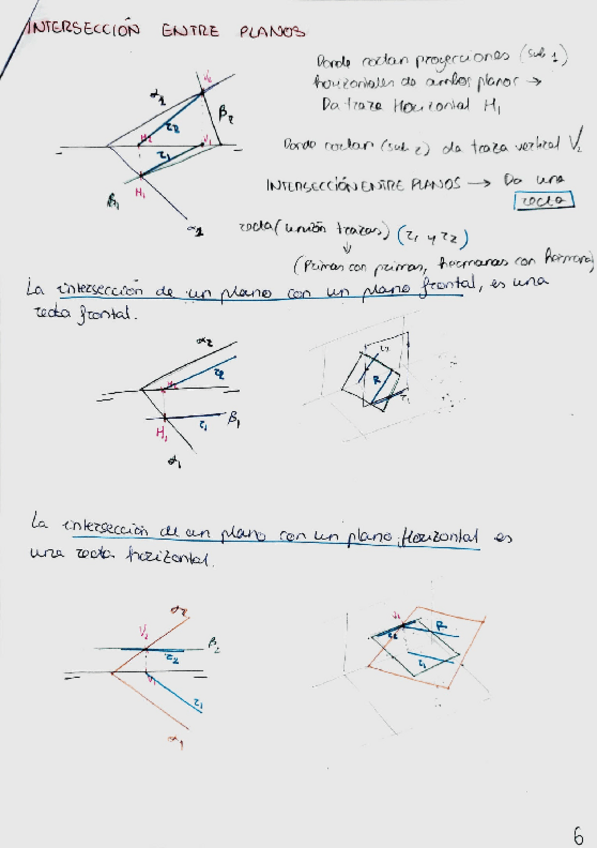 INTERSECCIÓN ENTRE PLANOS
Donde cortan proyecciones (sub 1)
horizontales de ambos planos →
Da traza Horizontal H1
Donde cortan (sub 2) da traza vertical V2
INTERSECCIÓN ENTRE PLANOS → Da una
recta
recta (unión trazas) (r1 y r2)
(Primas con primas, hermanas con hermanas)
α1
V2
β2
r2
H2
V1
r1
β1
H1
α1
La intersección de un plano con un plano frontal, es una
recta frontal.
α2
r2
H2
r1
β1
H1
α1
r2
R
r1
La intersección de un plano con un plano Horizontal es
una recta horizontal.
α2
V2
β2
r2
V1
r1
α1
V2
R
r2
r1
6